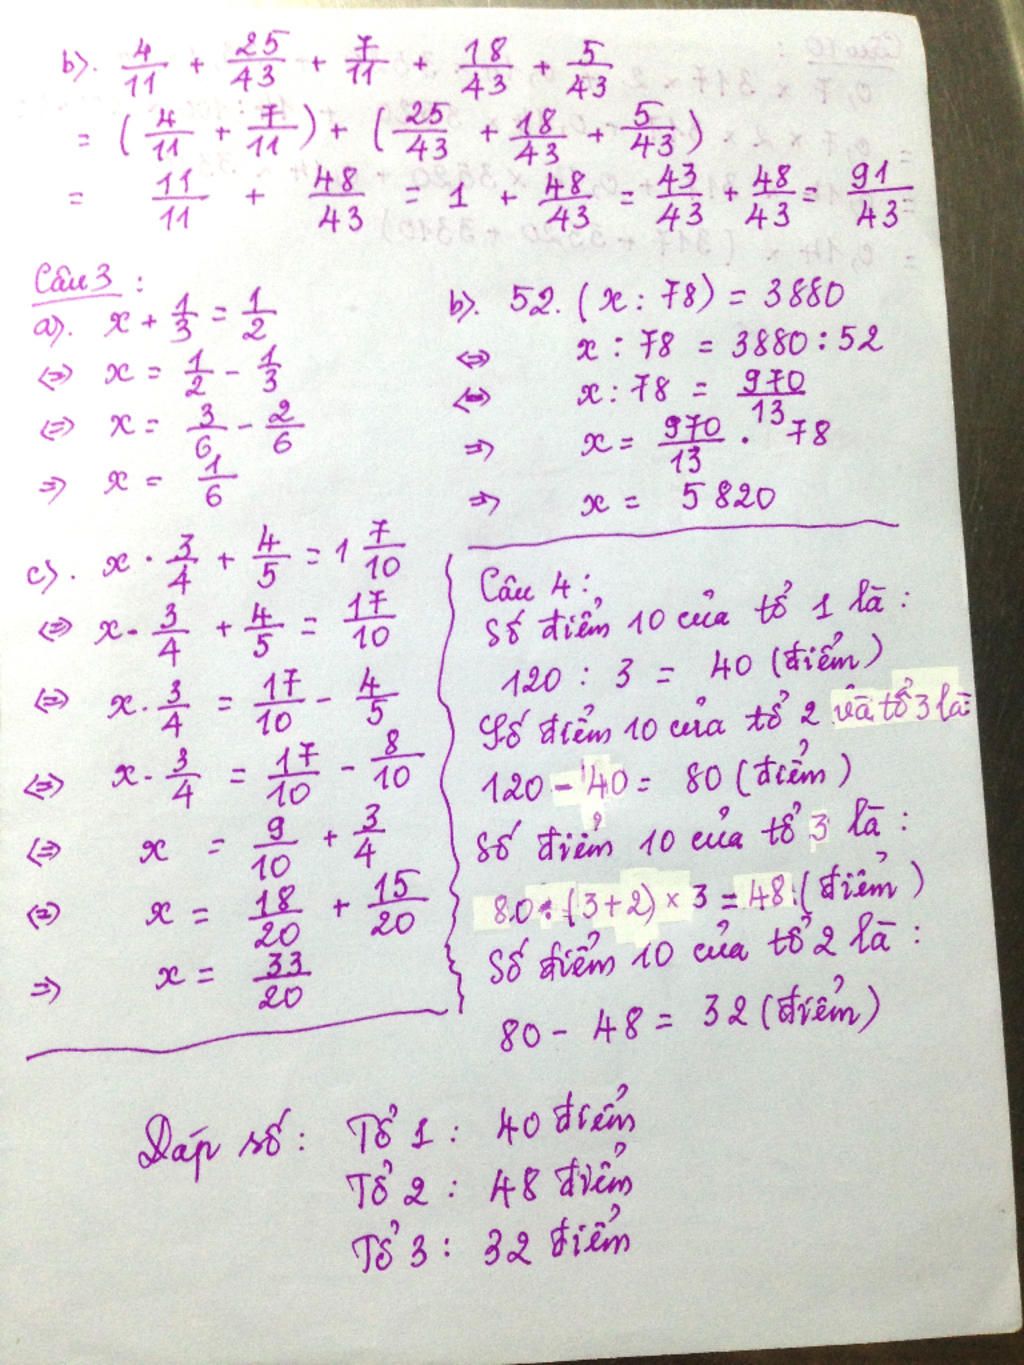 b). 4/11 + 25/43 + 7/11 + 18/43 + 5/43
= (4/11 + 7/11) + (25/43 + 18/43 + 5/43)
= 11/11 + 48/43 = 1 + 48/43 = 43/43 + 48/43 = 91/43
Câu 3 :
a). x + 1/3 = 1/2
⇔ x = 1/2 - 1/3
⇔ x = 3/6 - 2/6
⇒ x = 1/6
b). 52. (x : 78) = 3880
⇔ x : 78 = 3880 : 52
⇔ x : 78 = 970/13
⇒ x = 970/13 . 78
⇒ x = 5820
c). x . 3/4 + 4/5 = 1 7/10
⇔ x . 3/4 + 4/5 = 17/10
⇔ x . 3/4 = 17/10 - 4/5
⇔ x . 3/4 = 17/10 - 8/10
⇔ x = 9/10 + 3/4
⇔ x = 18/20 + 15/20
⇒ x = 33/20
Câu 4 :
Số điểm 10 của tổ 1 là :
120 : 3 = 40 (điểm)
Số điểm 10 của tổ 2 và tổ 3 là:
120 - 40 = 80 (điểm)
Số điểm 10 của tổ 3 là :
80 : (3+2) × 3 = 48 (điểm)
Số điểm 10 của tổ 2 là :
80 - 48 = 32 (điểm)
Đáp số : Tổ 1 : 40 điểm
Tổ 2 : 48 điểm
Tổ 3 : 32 điểm